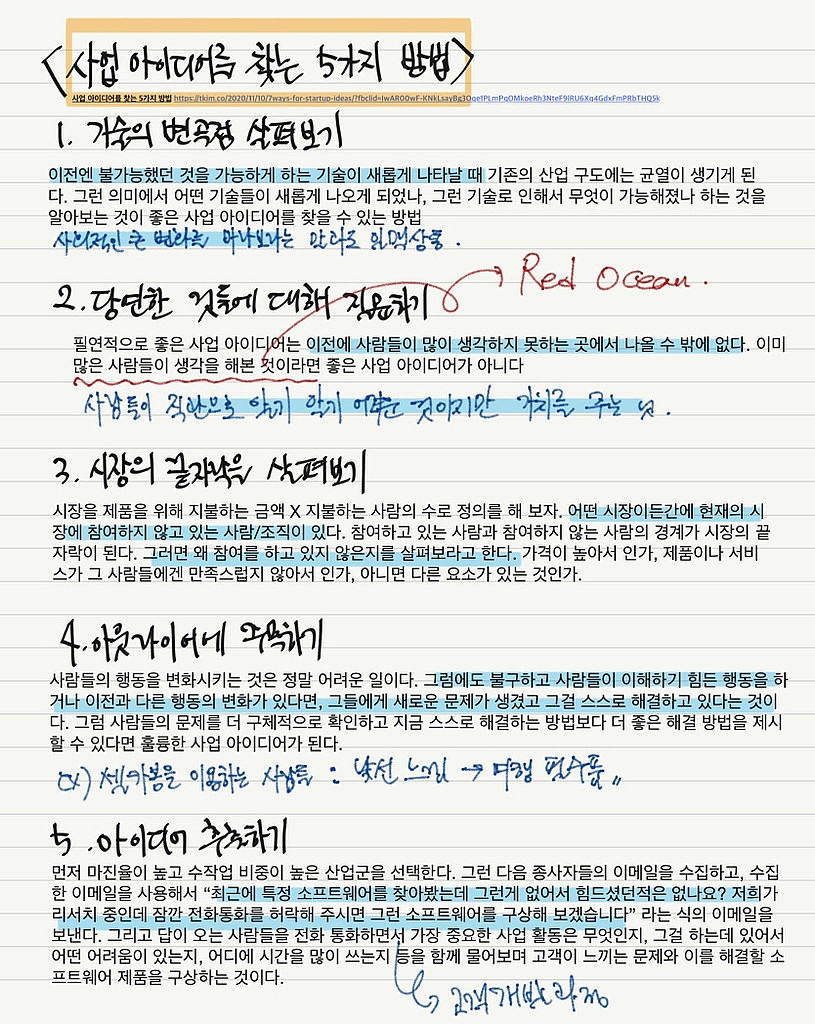 <사업 아이디어를 찾는 5가지 방법>
사업 아이디어를 찾는 5가지 방법 https://tkim.co/2020/11/10/7ways-for-startup-ideas/?fbclid=IwAR00wF-KNkLsayBg3Oqe1PLmPqOMkoeRh3NteF9lRU6Xq4GdxFmPRbTHQ5k
1. 기술의 변곡점 살펴보기
이전엔 불가능했던 것을 가능하게 하는 기술이 새롭게 나타날 때 기존의 산업 구도에는 균열이 생기게 된
다. 그런 의미에서 어떤 기술들이 새롭게 나오게 되었나, 그런 기술로 인해서 무엇이 가능해졌나 하는 것을
알아보는 것이 좋은 사업 아이디어를 찾을 수 있는 방법
큰 변화를 일맥상통.
Red Ocean.
2. 당연한 것들에 대해 질문하기
필연적으로 좋은 사업 아이디어는 이전에 사람들이 많이 생각하지 못하는 곳에서 나올 수 밖에 없다. 이미
많은 사람들이 생각을 해본 것이라면 좋은 사업 아이디어가 아니다
사람들이 직관으로 알기 어려운 것이지만 가치를 주는 것.
3. 시장의 끝자락을 살펴보기
시장을 제품을 위해 지불하는 금액 X 지불하는 사람의 수로 정의를 해 보자. 어떤 시장이든간에 현재의 시
장에 참여하지 않고 있는 사람/조직이 있다. 참여하고 있는 사람과 참여하지 않는 사람의 경계가 시장의 끝
자락이 된다. 그러면 왜 참여를 하고 있지 않은지를 살펴보라고 한다. 가격이 높아서 인가, 제품이나 서비
스가 그 사람들에겐 만족스럽지 않아서 인가, 아니면 다른 요소가 있는 것인가.
4. 아웃라이어에 주목하기
사람들의 행동을 변화시키는 것은 정말 어려운 일이다. 그럼에도 불구하고 사람들이 이해하기 힘든 행동을 하
거나 이전과 다른 행동의 변화가 있다면, 그들에게 새로운 문제가 생겼고 그걸 스스로 해결하고 있다는 것이
다. 그럼 사람들의 문제를 더 구체적으로 확인하고 지금 스스로 해결하는 방법보다 더 좋은 해결 방법을 제시
할 수 있다면 훌륭한 사업 아이디어가 된다.
ex) 셀카봉을 이용하는 사람들 : 낯선 느낌 → 여행 필수품"
5. 아이디어 추출하기
먼저 마진율이 높고 수작업 비중이 높은 산업군을 선택한다. 그런 다음 종사자들의 이메일을 수집하고, 수집
한 이메일을 사용해서 “최근에 특정 소프트웨어를 찾아봤는데 그런게 없어서 힘드셨던적은 없나요? 저희가
리서치 중인데 잠깐 전화통화를 허락해 주시면 그런 소프트웨어를 구상해 보겠습니다” 라는 식의 이메일을
보낸다. 그리고 답이 오는 사람들을 전화 통화하면서 가장 중요한 사업 활동은 무엇인지, 그걸 하는데 있어서
어떤 어려움이 있는지, 어디에 시간을 많이 쓰는지 등을 함께 물어보며 고객이 느끼는 문제와 이를 해결할 소
프트웨어 제품을 구상하는 것이다.
고객개발과정